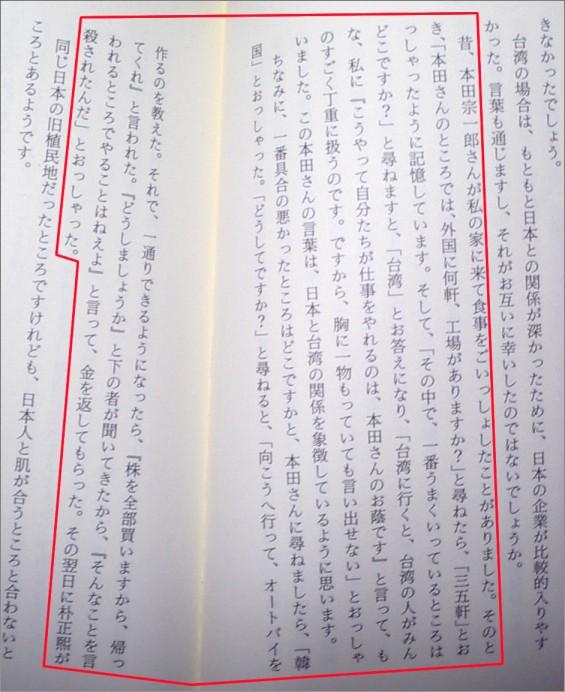 きなかったでしょう。
台湾の場合は、もともと日本との関係が深かったために、日本の企業が比較的入りやす
かった。言葉も通じますし、それがお互いに幸いしたのではないでしょうか。
昔、本田宗一郎さんが私の家に来て食事をごいっしょしたことがありました。そのと
き、「本田さんのところでは、外国に何軒、工場がありますか？」と尋ねたら、「三五軒」とお
っしゃったように記憶しています。そして、「その中で、一番うまくいっているところは
どこですか？」と尋ねますと、「台湾」とお答えになり、「台湾に行くと、台湾の人がみん
な、私に『こうやって自分たちが仕事をやれるのは、本田さんのお蔭です』と言って、も
のすごく丁重に扱うのです。ですから、胸に一物もっていても言い出せない」とおっしゃ
いました。この本田さんの言葉は、日本と台湾の関係を象徴しているように思います。
ちなみに、一番具合の悪かったところはどこですかと、本田さんに尋ねましたら、「韓
国」とおっしゃった。「どうしてですか？」と尋ねると、「向こうへ行って、オートバイを
作るのを教えた。それで、一通りできるようになったら、『株を全部買いますから、帰っ
てくれ』と言われた。『どうしましょうか』と下の者が聞いてきたから、『そんなことを言
われるところでやることはねえよ』と言って、金を返してもらった。その翌日に朴正熙が
殺されたんだ」とおっしゃった。
同じ日本の旧植民地だったところですけれども、日本人と肌が合うところと合わないと
ころとあるようです。